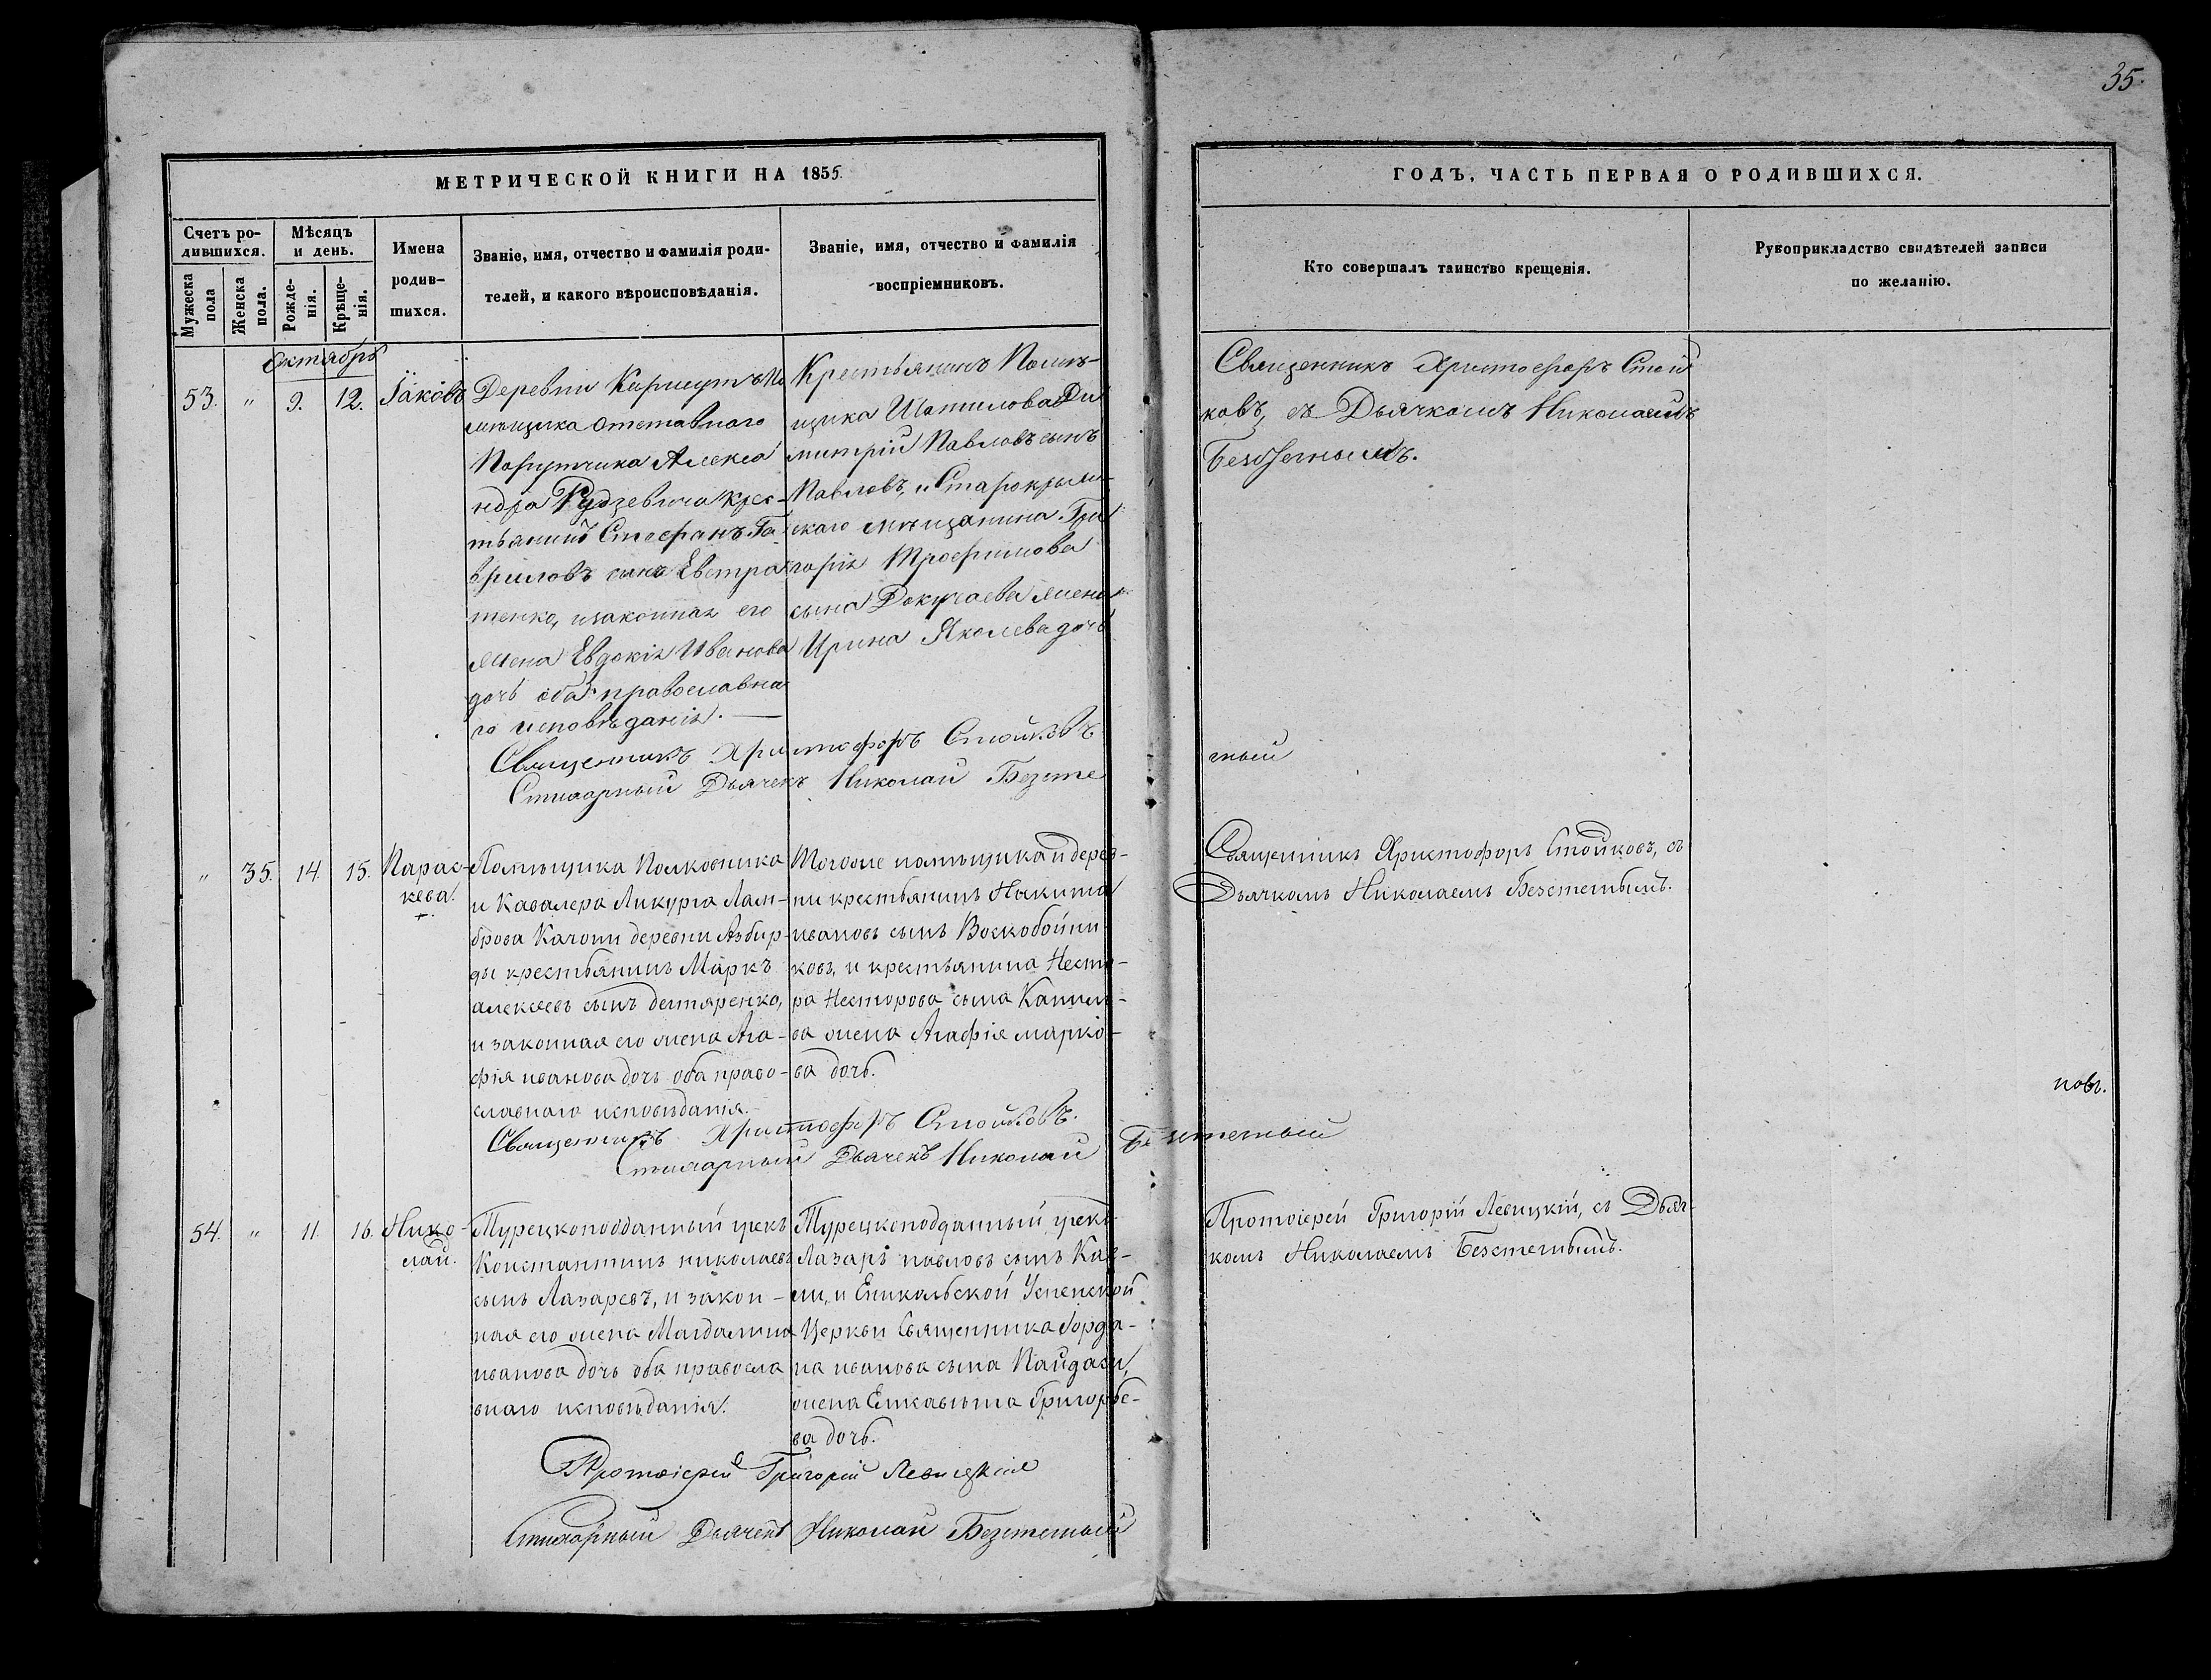 35.
МЕТРИЧЕСКОЙ КНИГИ НА 1855.
Счетъ ро-
дившихся.
Мужеска
пола
Женска
пола.
Мѣсяцъ
и день.
Рожде-
нія.
Крѣще-
нія.
Имена
родив-
шихся.
Званіе, имя, отчество и фамилія роди-
телей, и какого вѣроисповѣданія.
Званіе, имя, отчество и фамилія
воспріемниковъ.
ГОДЪ, ЧАСТЬ ПЕРВАЯ О РОДИВШИХСЯ.
Кто совершалъ таинство крещенія.
Рукоприкладство свидѣтелей записи
по желанію.
Октябрь
53. " 9. 12. Іаковъ
Деревни По
мѣщика отставнаго
Порутчика Алекса
ндра Рудзевича кре-
тьянинъ Стефанъ Га
вриловъ сынъ Евтра
тенко, и законная его
жена Евдокія Иванова
дочь оба православна
го исповѣданія.
Крестьянинъ Помѣ-
щика Шатилова Ди
митрій Павловъ сынъ
Павловъ, и Старокрым-
скаго мѣщанина Гри
горія Трофимова
сына Докучаева жена
Ирина Яколева дочь
Священникъ Христофоръ Стой
ковъ, съ Дьячкомъ Николаемъ
Безстетнымъ.
Священникъ Христофоръ Стойковъ
Стихарный Дьячекъ Николай Безсте
тный
" 35. 14. 15. Парас-
кева.
Помѣщика Полковника
и Кавалера Ликурга Лам-
брова Качони деревни Азбир-
ды крестьянинъ Маркъ
алексѣевъ сынъ дегтяренко,
и законная его жена Ага-
фія иванова дочь оба право-
славнаго исповѣданія.
Тогоже помѣщика и дерев-
ни крестьянинъ Никита
ивановъ сынъ Воскобойни
ковъ, и крестьянина Несто-
ра Несторова сына
ва жена Агафія марко-
ва дочь.
Священникъ Христофоръ Стойковъ, съ
Дьячкомъ Николаемъ Безстетнымъ.
новъ.
Священникъ Христофоръ Стойковъ.
Стихарный Дьячекъ Николай Безстетный
54. " 11. 16. Нико-
лай.
Турецкоподданный грекъ
Константинъ николаевъ
сынъ Лазаревъ, и закон-
ная его жена Магдалина
иванова дочь оба правосла
внаго исповѣданія.
Турецкоподданный грекъ
Лазарь павловъ сынъ
и Еникольской Успенской
Церкви Священника Горда-
на иванова сына Пайдаки,
жена Елисавѣта Григорье-
ва дочь.
Протоіерей Григорій Левицкій, съ Дьяч-
комъ Николаемъ Безстетнымъ.
Протоіерей Григорій Левицкій
Стихарный Дьячекъ Николай Безстетный